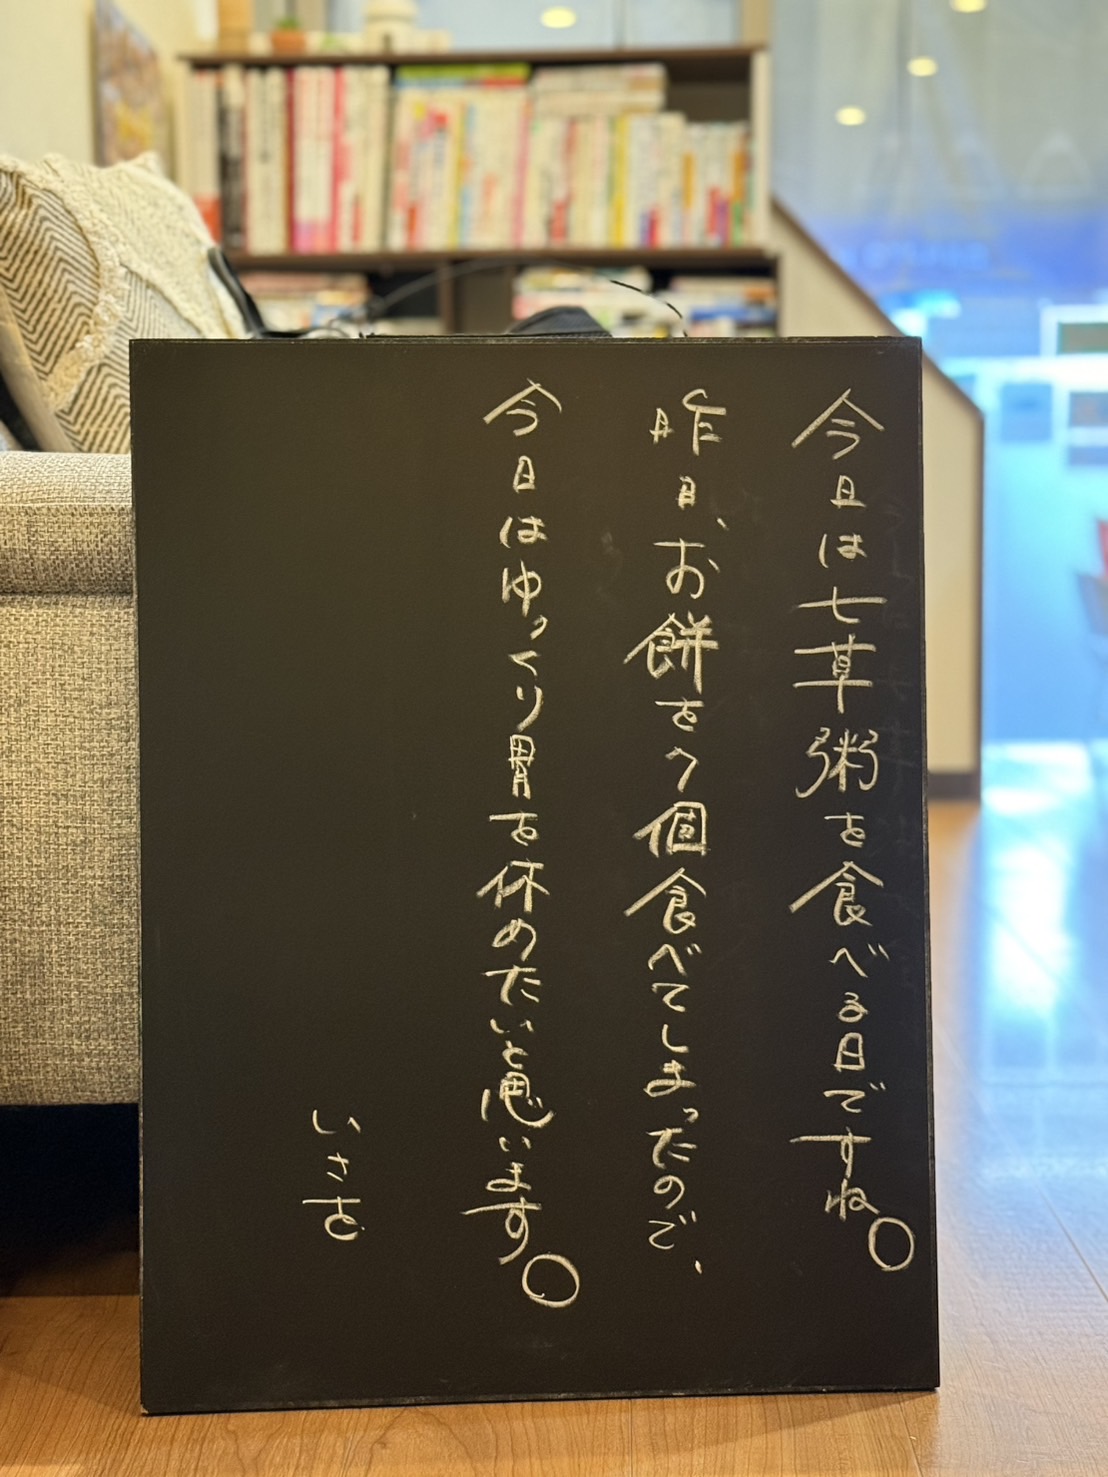 今日は七草粥を食べる日ですね。
昨日、お餅を7個食べてしまったので、
今日はゆっくり胃を休めたいと思います。
いさを